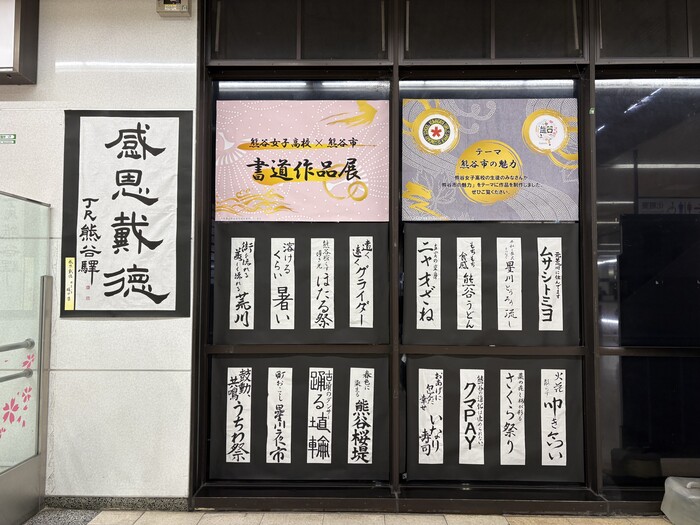 感恩戴德
JR熊谷驛
熊谷女子高校×熊谷市
書道作品展
テーマ
熊谷市の魅力
熊谷女子高校の生徒のみなさんが
「熊谷市の魅力」をテーマに作品を制作しました。
ぜひご覧ください。
遠く遠く
グライダー
ほたる祭
溶けるくらい
暑い
街を流れる
荒川
元荒川に住んでます
ムサシトミヨ
星川とうろう流し
もちもち食感
熊谷うどん
ニャオざね
春色に染まる
熊谷桜堤
古墳のダンサー
踊る埴輪
町おこし
星川夜市
鼓動、共鳴、
うちわ祭
火花
叩き合い
さくら祭り
クマPAY
おあげに包む幸せ
いなり寿司